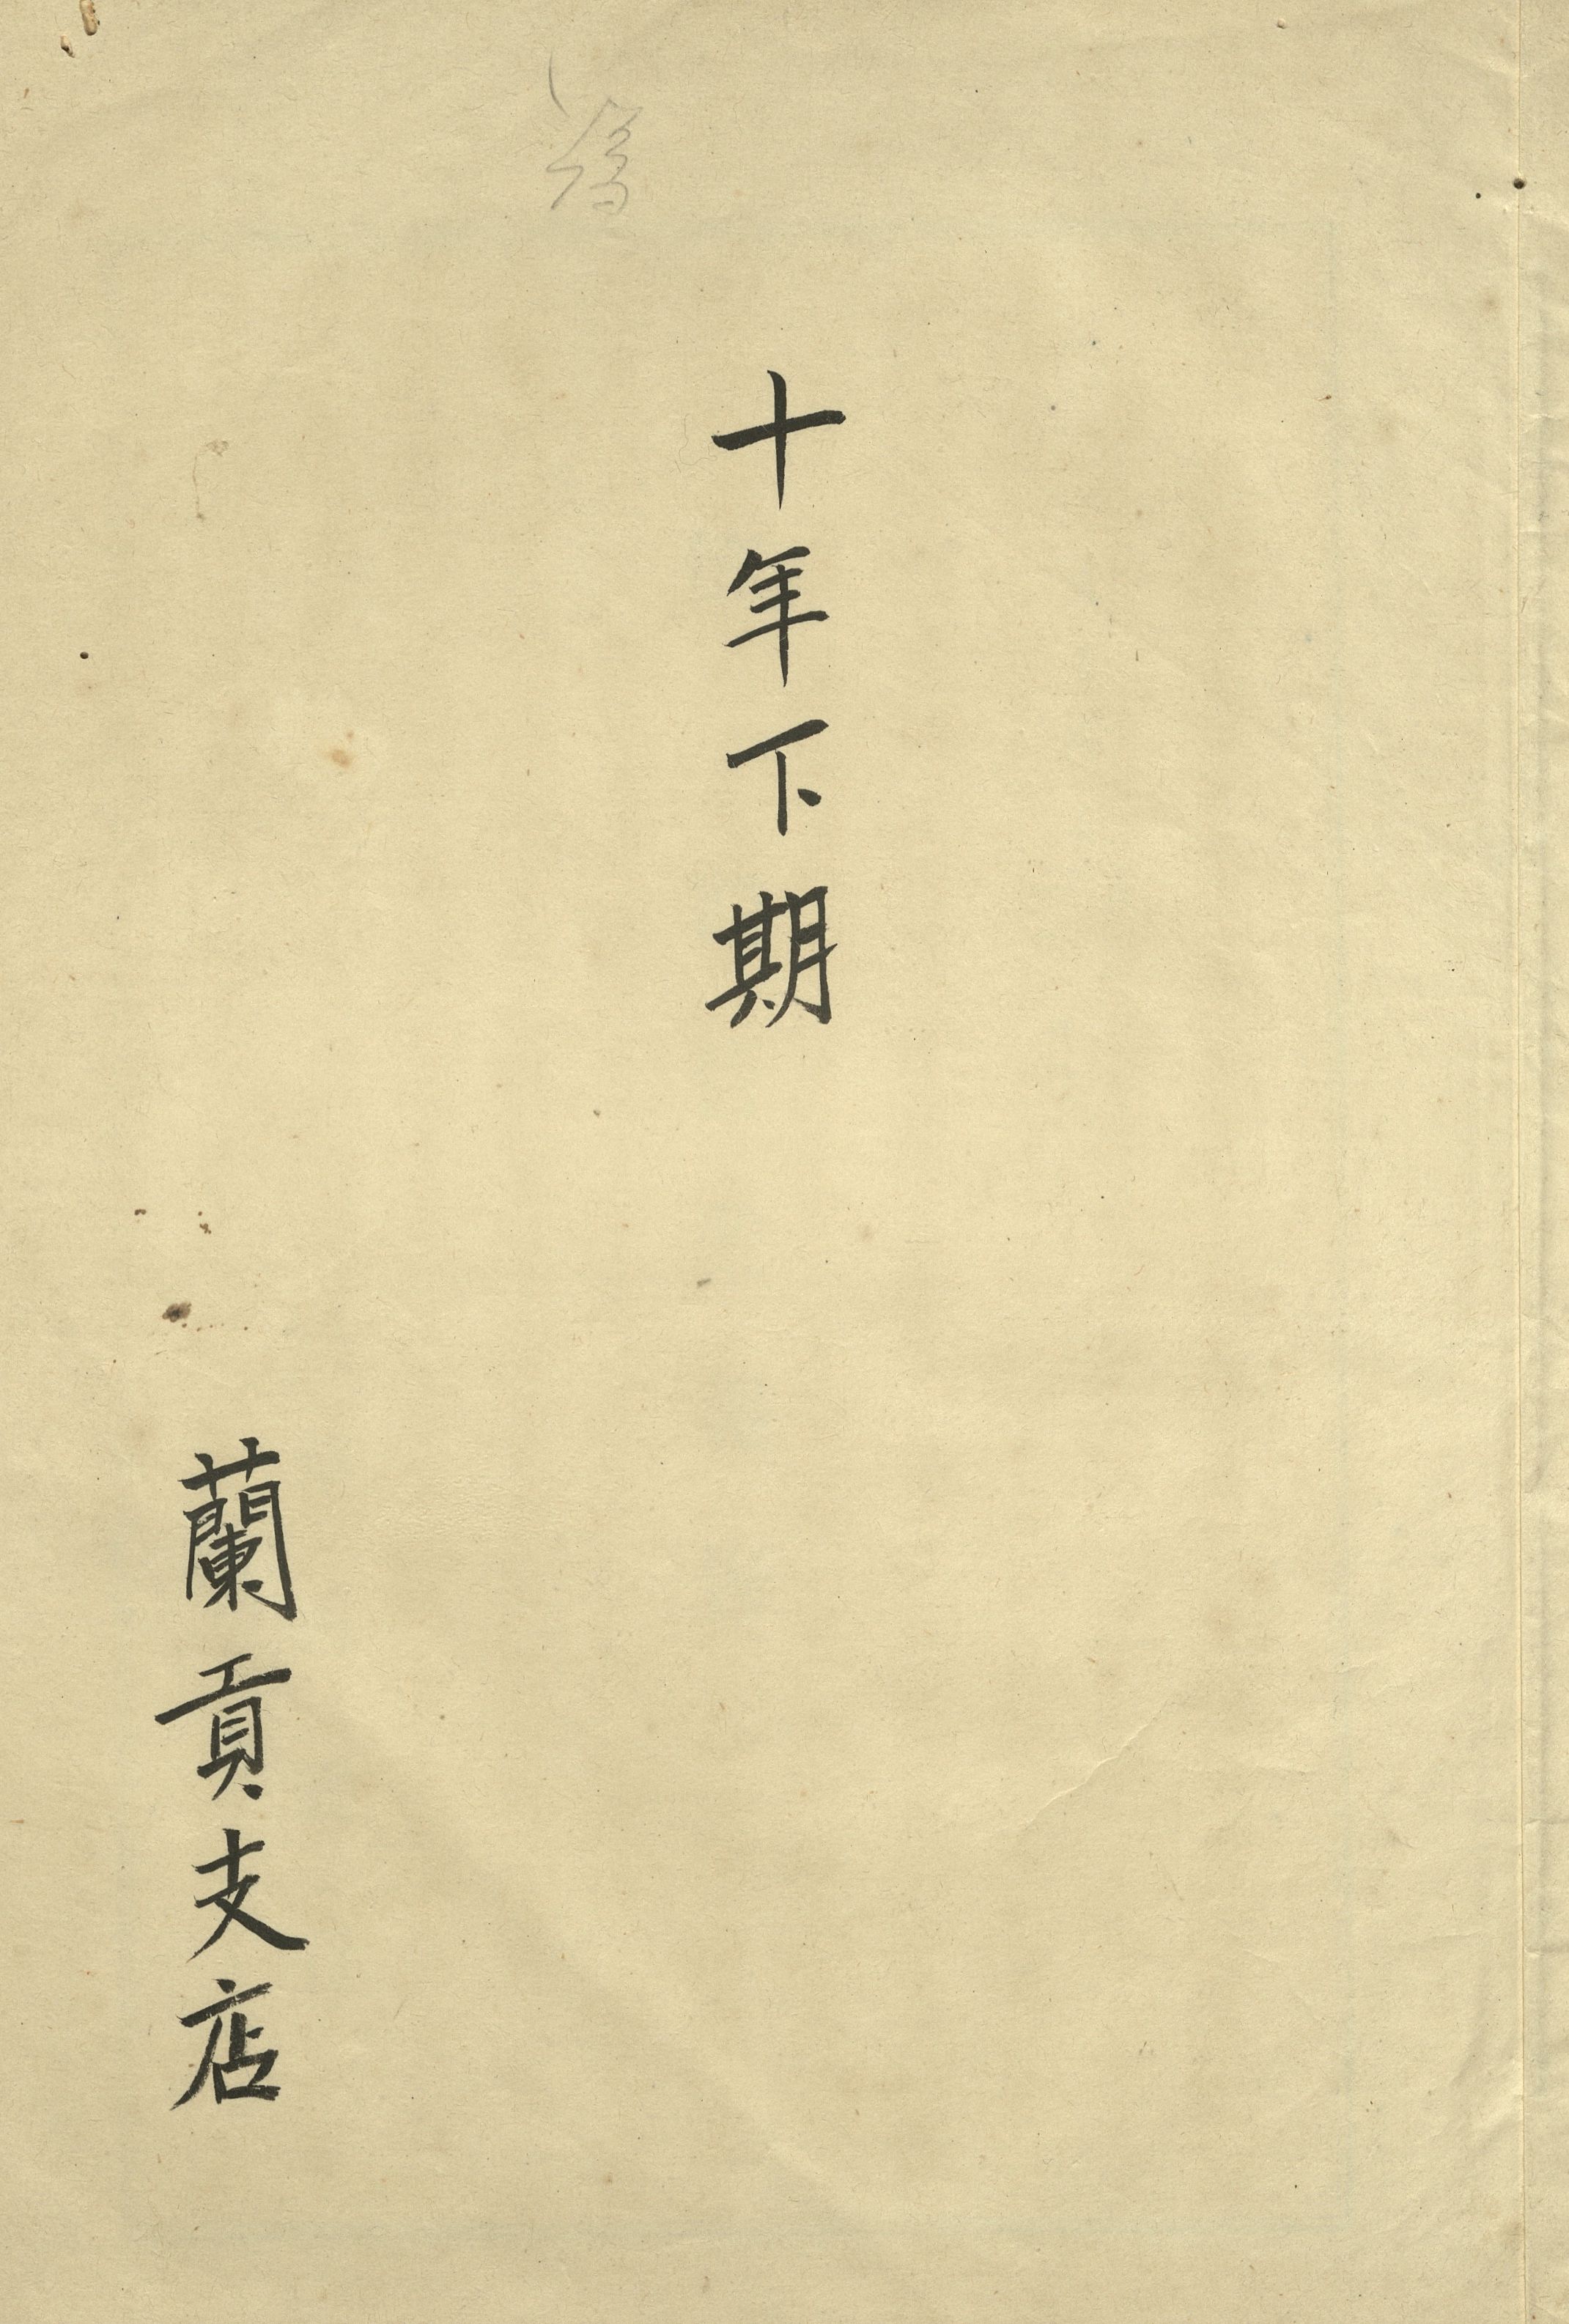 十年下期
蘭貢支店